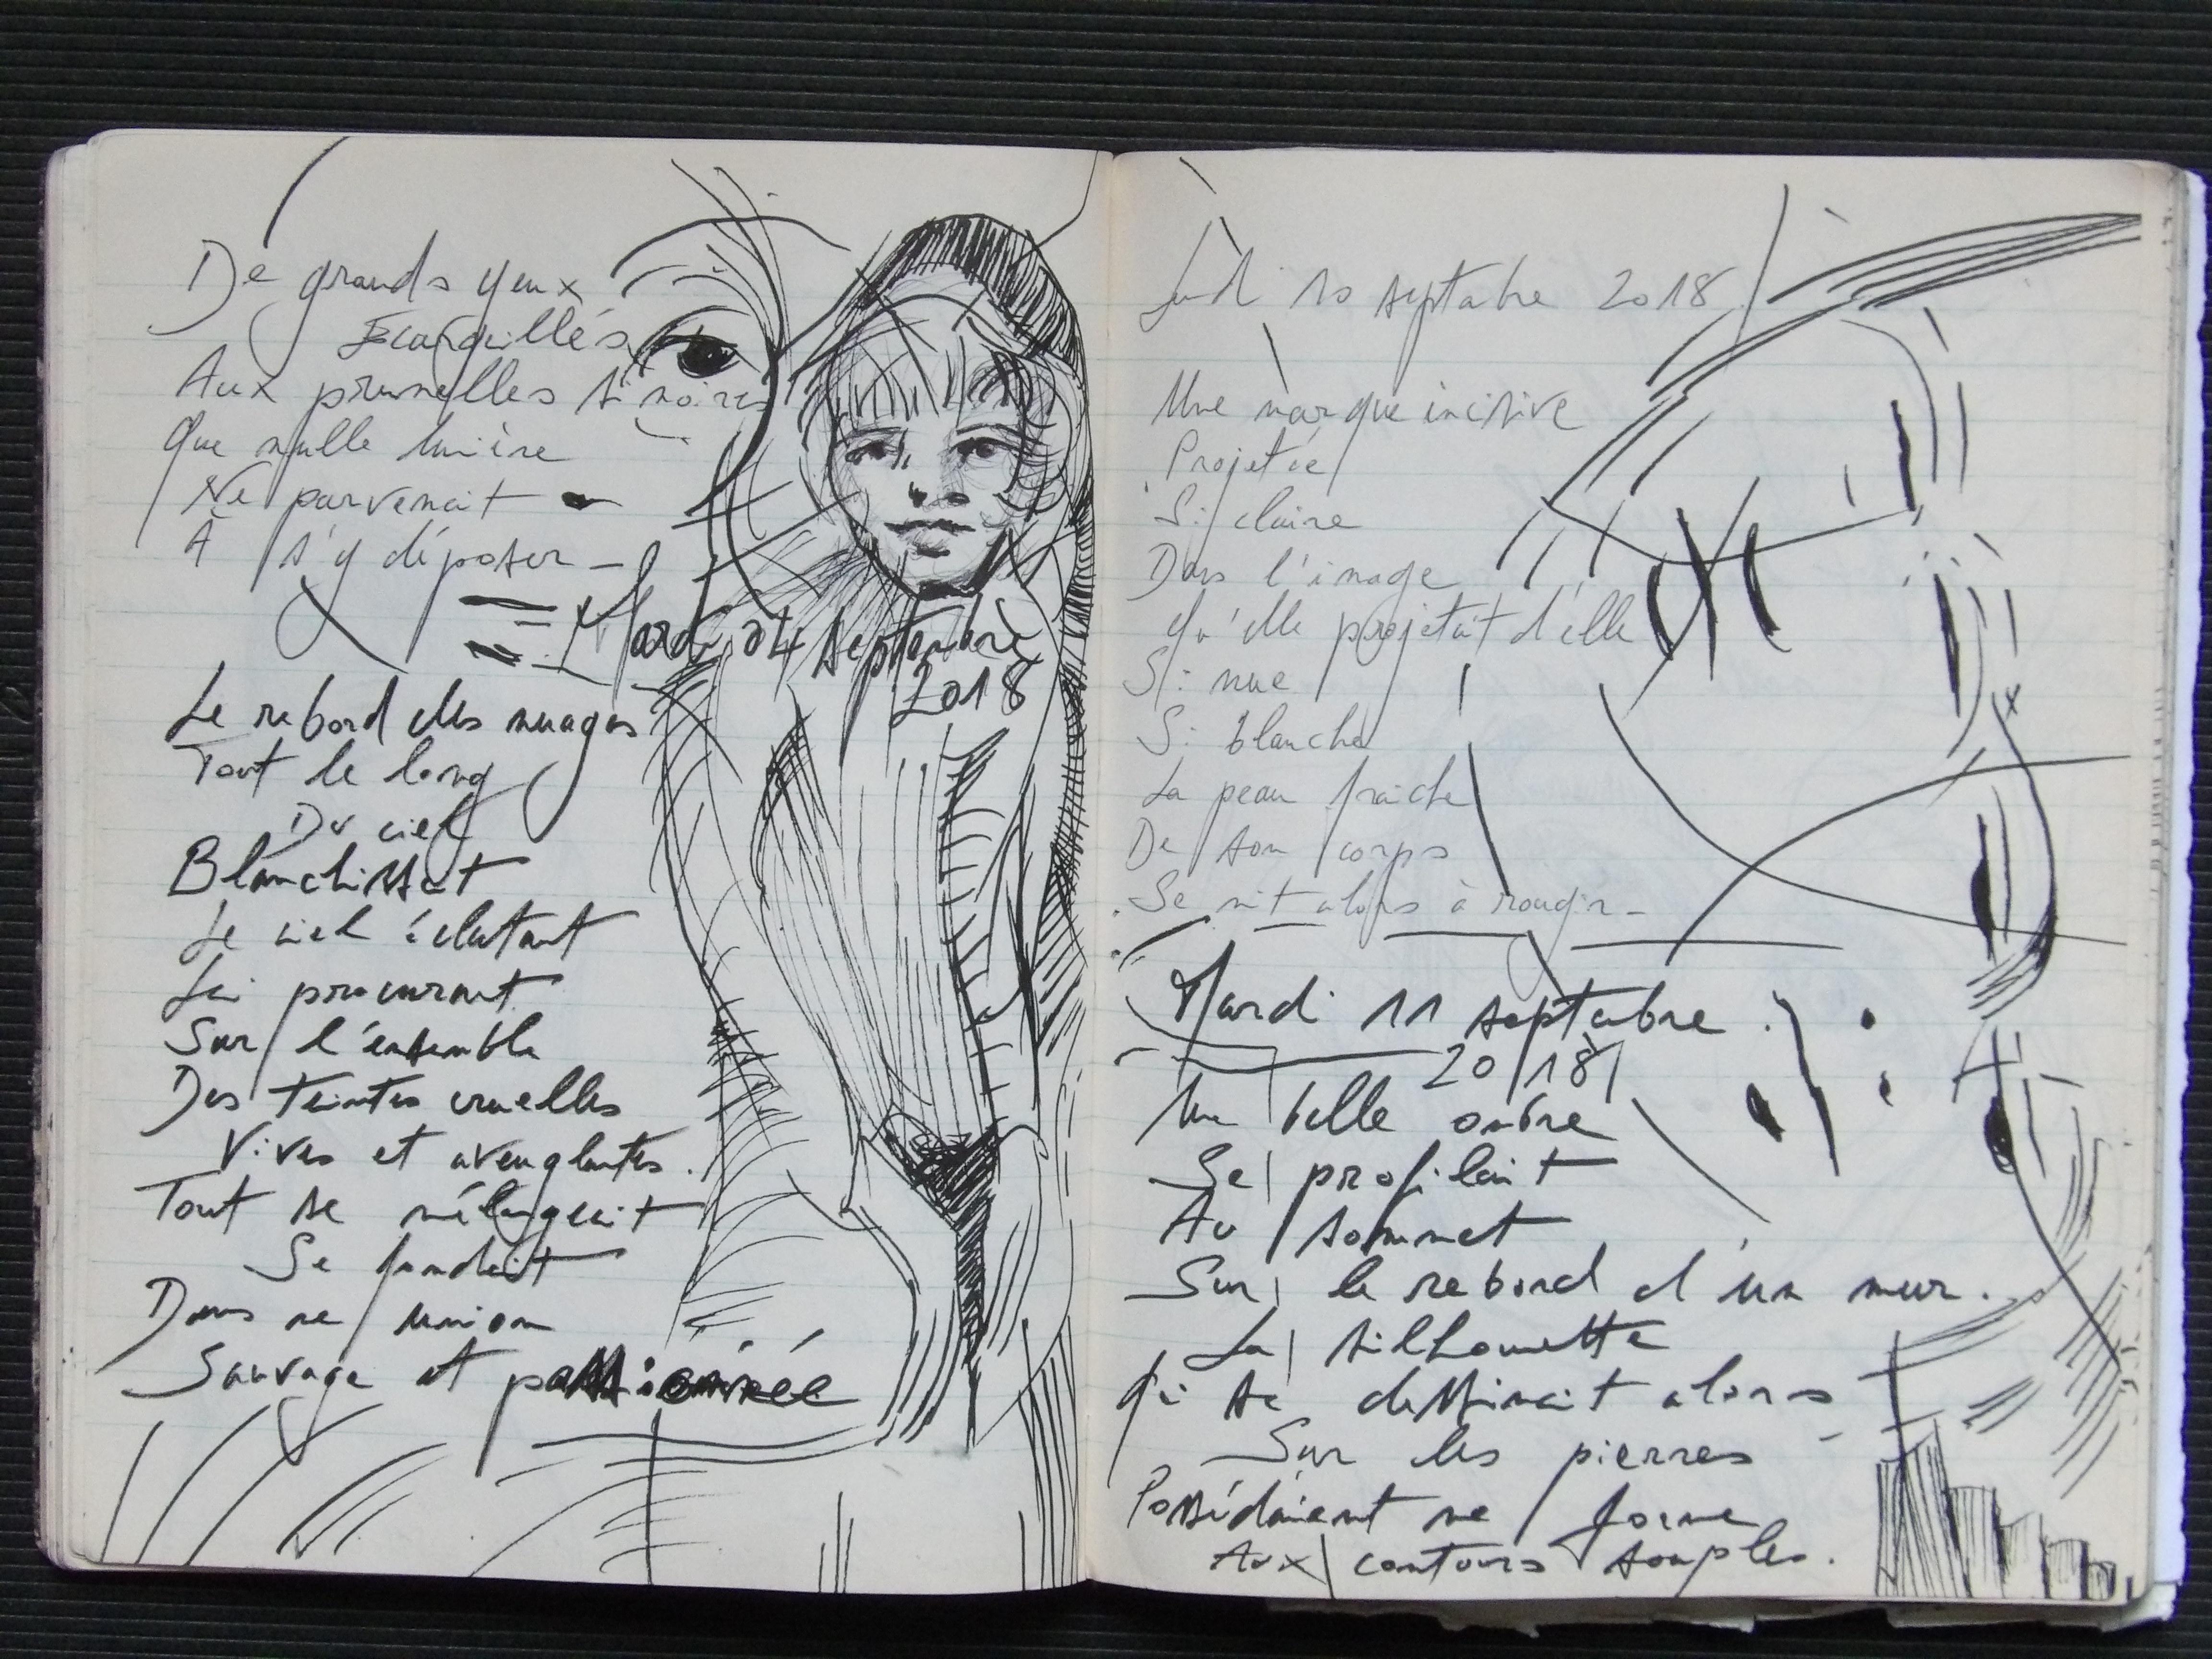 De grands yeux
Écarquillés
Aux prunelles si noires
Que nulle lumière
Ne parvenait
À s'y déposer
Mardi 04 septembre
2018
Le rebord des nuages
Tout le long
Du ciel
Blanchissait
Le ciel éclatant
Lui procurant
Sur l'ensemble
Des teintes cruelles
Vives et aveuglantes.
Tout se mélangeait
Se fondait
Dans une union
Sauvage et passionnée
Lundi 10 septembre 2018
Une marque incisive
Projetée
Si claire
Dans l'image
Qu'elle projetait d'elle
Si nue
Si blanche
La peau fraîche
De son corps
Se mit alors à rougir
Mardi 11 septembre
2018
Une belle ombre
Se profilait
Au sommet
Sur le rebord d'un mur.
La silhouette
Qui se dessinait alors
Sur les pierres
Possédaient une forme
Aux contours souples.